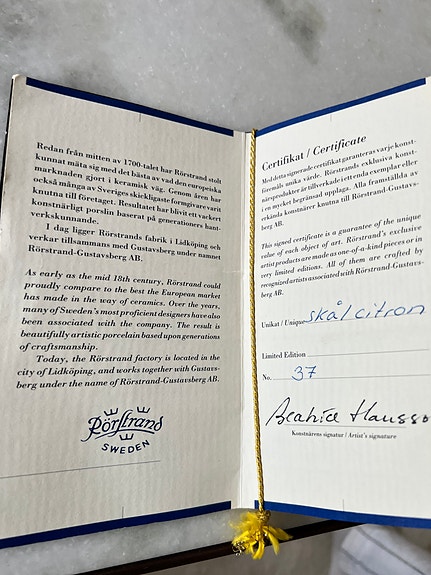 Redan från mitten av 1700-talet har Rörstrand stolt
kunnat mäta sig med det bästa av vad den europeiska
marknaden gjort i keramisk väg. Genom åren har
också många av Sveriges skickligaste formgivare varit
knutna till företaget. Resultatet har blivit ett vackert
konstnärligt porslin baserat på generationers hant-
verkskunnande.
I dag ligger Rörstrands fabrik i Lidköping och
verkar tillsammans med Gustavsberg under namnet
Rörstrand-Gustavsberg AB.
As early as the mid 18th century, Rörstrand could
proudly compare to the best the European market
has made in the way of ceramics. Over the years,
many of Sweden's most proficient designers have also
been associated with the company. The result is
beautifully artistic porcelain based upon generations
of craftsmanship.
Today, the Rörstrand factory is located in the
city of Lidköping, and works together with Gustavs-
berg under the name of Rörstrand-Gustavsberg AB.
Rörstrand
SWEDEN
Certifikat / Certificate
Med detta signerade certifikat garanteras varje konst-
föremåls unika värde. Rörstrands exklusiva konst-
närsprodukter är tillverkade i ett enda exemplar eller
i en mycket begränsad upplaga. Alla framställda av
erkända konstnärer knutna till Rörstrand-Gustavs-
berg AB.
This signed certificate is a guarantee of the unique
value of each object of art. Rörstrand's exclusive
artist products are made as one-of-a-kind pieces or in
very limited editions. All of them are crafted by
recognized artists associated with Rörstrand-Gustavs-
berg AB.
Unikat / Unique skål citron
Limited Edition
No. 37
Beatrice Hansso
Konstnärens signatur / Artist's signature